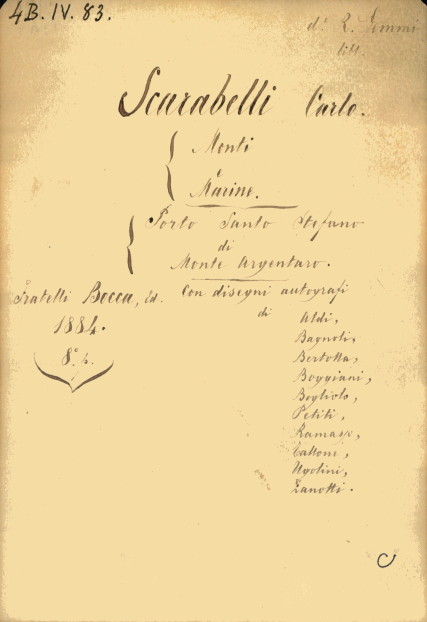 4B. IV. 83.
d. R. Gemmi
Scarabelli Carlo.
Monti
e
Marine.
Porto Santo Stefano
di
Monte Argentaro.
Fratelli Bocca, Ed. Con disegni autografi
1884. di Aldi,
8° Bagnoli,
Bertotta,
Boggiani,
Bogliolo,
Petiti,
Ramassi,
Tallone,
Ugolini,
Zanotti.